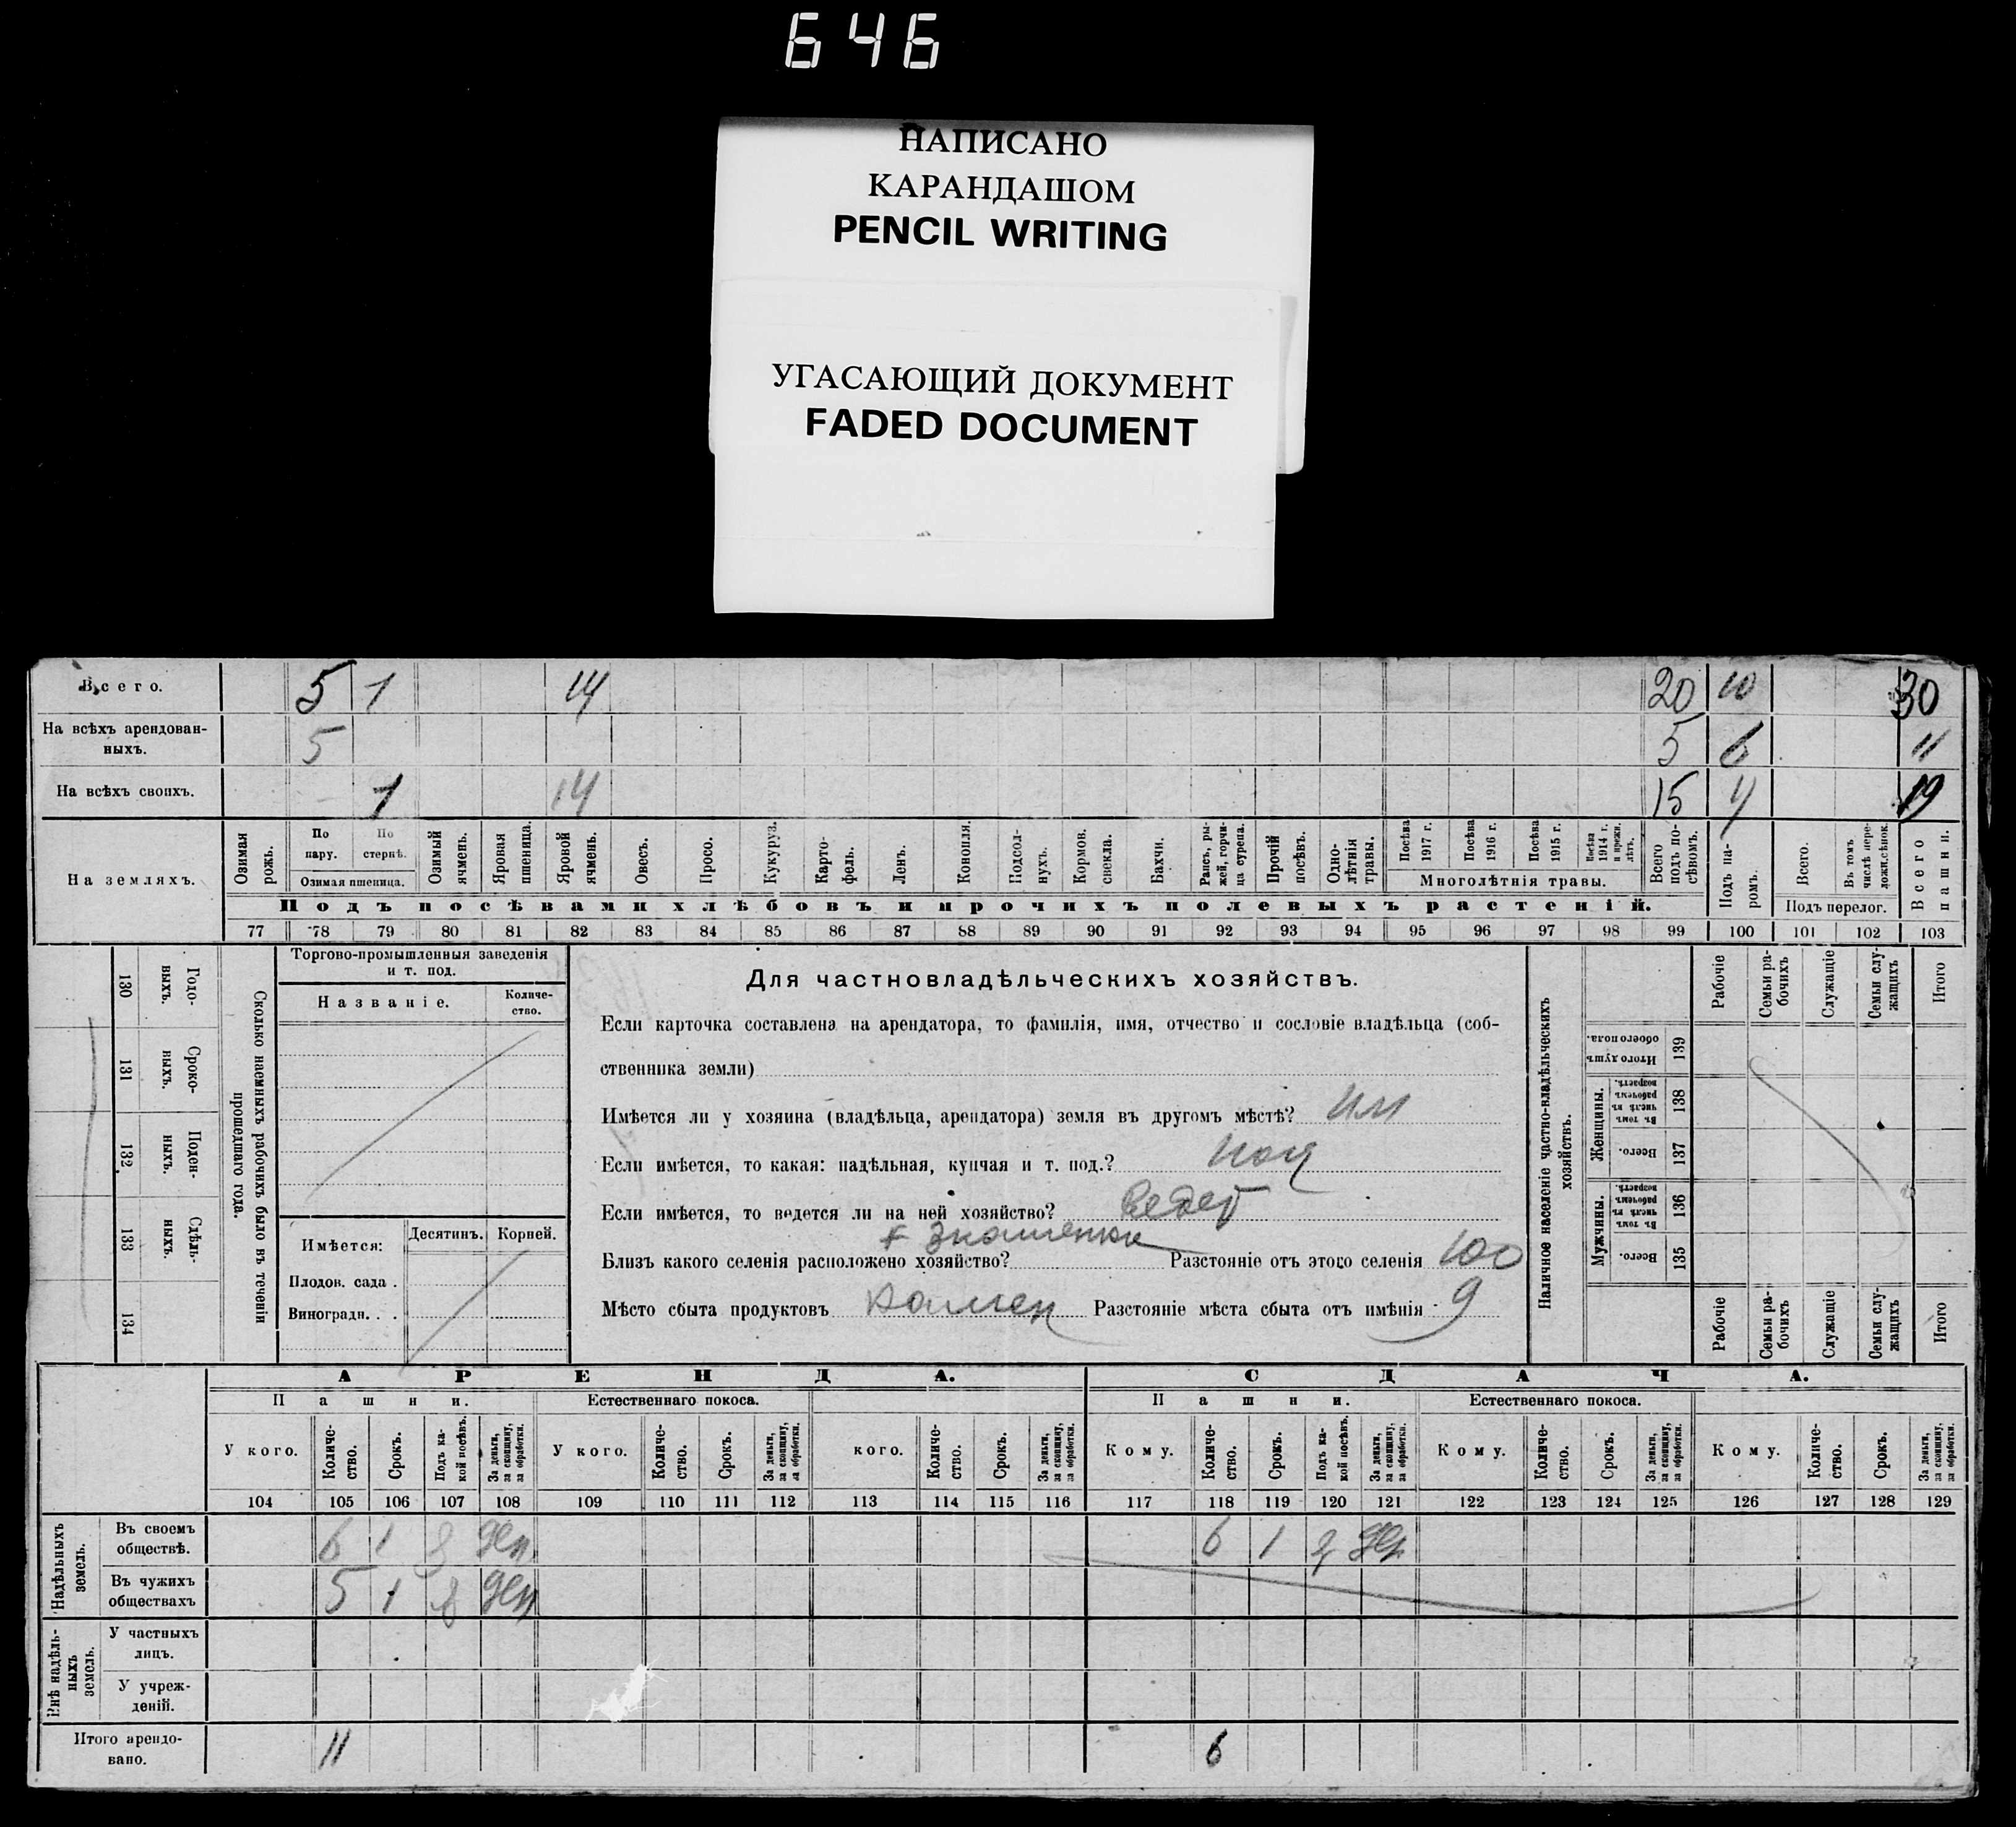 646
НАПИСАНО
КАРАНДАШОМ
PENCIL WRITING
УГАСАЮЩИЙ ДОКУМЕНТ
FADED DOCUMENT
Всего. 5 1 14 20 10 30
На всѣхъ арендован-
ныхъ. 5 5 6 11
На всѣхъ своихъ. 1 14 15 4 19
На земляхъ.
Озимая рожь.
По пару.
По стернѣ.
Озимая пшеница.
Озимый ячмень.
Яровая пшеница.
Яровой ячмень.
Овесъ.
Просо.
Кукуруза.
Карто-
фель.
Ленъ.
Конопля.
Подсол-
нухъ.
Кормов. свекла.
Бахчи.
Рапсъ, ры-
жей, горчи-
ца сурепа.
Прочій посѣвъ.
Одно-
лѣтнія травы.
Посѣва 1917 г.
Посѣва 1916 г.
Посѣва 1915 г.
Посѣва 1914 г. и прежн. лѣтъ.
Многолѣтнія травы.
Всего подъ по-
сѣвомъ.
Подъ па-
ромъ.
Всего.
Въ томъ числѣ пере-
ложн. сѣнок.
Подъ перелог.
Всего пашни.
Подъ посѣвами хлѣбовъ и прочихъ полевыхъ растеній.
77 78 79 80 81 82 83 84 85 86 87 88 89 90 91 92 93 94 95 96 97 98 99 100 101 102 103
Сколько наемныхъ рабочихъ было въ теченіи
прошедшаго года.
Годо-
выхъ.
130
Сроко-
ныхъ.
131
Поден-
ныхъ.
132
Сдѣль-
ныхъ.
133
134
Торгово-промышленныя заведенія
и т. под.
Названіе.
Количе-
ство.
Имѣется:
Десятинъ.
Корней.
Плодов. сада .
Виноградн. . .
Для частновладѣльческихъ хозяйствъ.
Если карточка составлена на арендатора, то фамилія, имя, отчество и сословіе владѣльца (соб-
ственника земли)
Имѣется ли у хозяина (владѣльца, арендатора) земля въ другомъ мѣстѣ? им
Если имѣется, то какая: надѣльная, купчая и т. под.? над
Если имѣется, то ведется ли на ней хозяйство? ведет
Близъ какого селенія расположено хозяйство? Знаменки Разстояніе отъ этого селенія 100
Мѣсто сбыта продуктовъ Разстояніе мѣста сбыта отъ имѣнія 9
Наличное населеніе частно-владѣльческихъ
хозяйствъ.
Рабочіе
Семьи ра-
бочихъ
Служащіе
Семьи слу-
жащихъ
Итого
Итого душъ
обоего пола.
139
Женщины.
Въ томъ числѣ въ рабочемъ возрастѣ.
138
Всего.
137
Мужчины.
Въ томъ числѣ въ рабочемъ возрастѣ.
136
Всего.
135
Рабочіе
Семьи ра-
бочихъ
Служащіе
Семьи слу-
жащихъ
Итого
АРЕНДА. СДАЧА.
Пашни. Естественнаго покоса. Пашни. Естественнаго покоса.
У кого. Количе-
ство. Срокъ. Подъ ка-
кой посѣвъ. За деньги, за скопщину, за обработки.
У кого. Количе-
ство. Срокъ. За деньги, за скопщину, за обработки.
кого. Количе-
ство. Срокъ. За деньги, за скопщину, за обработки.
Кому. Количе-
ство. Срокъ. Подъ ка-
кой посѣвъ. За деньги, за скопщину, за обработки.
Кому. Количе-
ство. Срокъ. За деньги, за скопщину, за обработки.
Кому. Количе-
ство. Срокъ. За деньги, за скопщину, за обработки.
104 105 106 107 108 109 110 111 112 113 114 115 116 117 118 119 120 121 122 123 124 125 126 127 128 129
Надѣльныхъ
земель.
Въ своемъ
обществѣ. 6 1 ден 6 1
Въ чужихъ
обществахъ 5 1 ден
Внѣ надѣль-
ныхъ
земель.
У частныхъ
лицъ.
У учреж-
деній.
Итого арендо-
вано. 11 6